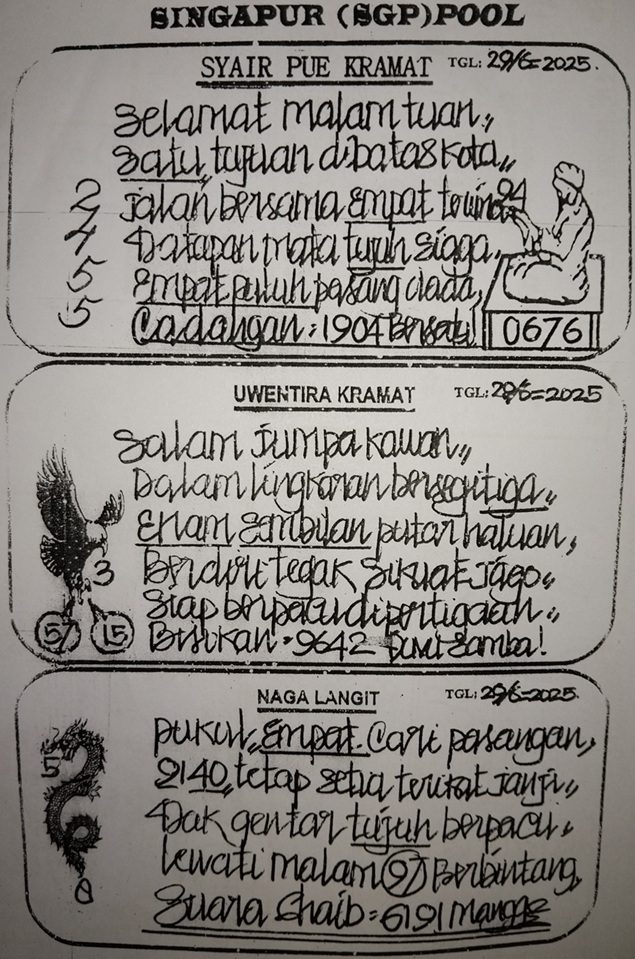 SINGAPUR (SGP) POOL
SYAIR PUE KRAMAT TGL: 29/6=2025.
Selamat malam tuan,,
Satu, tujuan dibatas kota,,
2 Jalan bersama Empat 94
4 Datapan mata tujuh Siaga,
5 Empat puluh pasang dada,
5 Cadangan: 1904 Bersatu!
0676
UWENTIRA KRAMAT TGL: 29/6=2025
Salam Jumpa kawan,,
Dalam lingkaran bersegitiga,,
Enam Sembilan putar haluan,
3 Berdiri tegak Sikuat Jago,,
Siap berpacu dipertigaan,,
57 15 Bisikan: 9642 Samba!
NAGA LANGIT TGL: 29/6=2025.
Pukul, Empat. Cari pasangan,
5 2140, tetap setia terikat janji,,
Dak gentar tujuh berpacu,,
Lewati malam 97 Berbintang,
0 Suara Ghaib: 6191